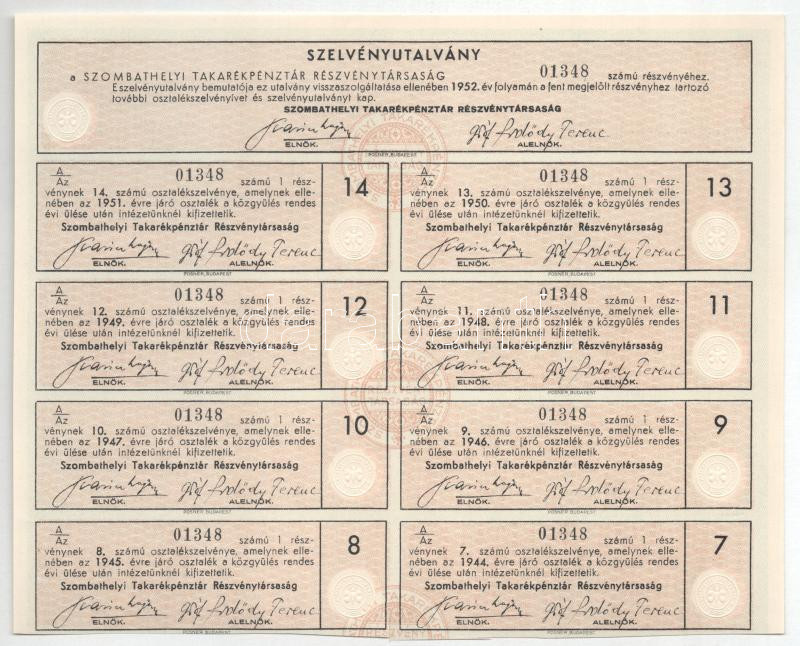 SZELVÉNYUTALVÁNY
a SZOMBATHELYI TAKARÉKPÉNZTÁR RÉSZVÉNYTÁRSASÁG 01348 számú részvényéhez.
E szelvényutalvány bemutatója ez utalvány visszaszolgáltatása ellenében 1952. év folyamán a fent megjelölt részvényhez tartozó
további osztalékszelvényívet és szelvényutalványt kap.
SZOMBATHELYI TAKARÉKPÉNZTÁR RÉSZVÉNYTÁRSASÁG
ELNÖK. ALELNÖK.
POSNER, BUDAPEST
A/Az 01348 számú 1 rész-
vénynek 14. számú osztalékszelvénye, amelynek elle-
nében az 1951. évre járó osztalék a közgyűlés rendes
évi ülése után intézetünknél kifizettetik.
Szombathelyi Takarékpénztár Részvénytársaság
ELNÖK. ALELNÖK.
14
POSNER, BUDAPEST
A/Az 01348 számú 1 rész-
vénynek 13. számú osztalékszelvénye, amelynek elle-
nében az 1950. évre járó osztalék a közgyűlés rendes
évi ülése után intézetünknél kifizettetik.
Szombathelyi Takarékpénztár Részvénytársaság
ELNÖK. ALELNÖK.
13
POSNER, BUDAPEST
A/Az 01348 számú 1 rész-
vénynek 12. számú osztalékszelvénye, amelynek elle-
nében az 1949. évre járó osztalék a közgyűlés rendes
évi ülése után intézetünknél kifizettetik.
Szombathelyi Takarékpénztár Részvénytársaság
ELNÖK. ALELNÖK.
12
POSNER, BUDAPEST
A/Az 01348 számú 1 rész-
vénynek 11. számú osztalékszelvénye, amelynek elle-
nében az 1948. évre járó osztalék a közgyűlés rendes
évi ülése után intézetünknél kifizettetik.
Szombathelyi Takarékpénztár Részvénytársaság
ELNÖK. ALELNÖK.
11
POSNER, BUDAPEST
A/Az 01348 számú 1 rész-
vénynek 10. számú osztalékszelvénye, amelynek elle-
nében az 1947. évre járó osztalék a közgyűlés rendes
évi ülése után intézetünknél kifizettetik.
Szombathelyi Takarékpénztár Részvénytársaság
ELNÖK. ALELNÖK.
10
POSNER, BUDAPEST
A/Az 01348 számú 1 rész-
vénynek 9. számú osztalékszelvénye, amelynek elle-
nében az 1946. évre járó osztalék a közgyűlés rendes
évi ülése után intézetünknél kifizettetik.
Szombathelyi Takarékpénztár Részvénytársaság
ELNÖK. ALELNÖK.
9
POSNER, BUDAPEST
A/Az 01348 számú 1 rész-
vénynek 8. számú osztalékszelvénye, amelynek elle-
nében az 1945. évre járó osztalék a közgyűlés rendes
évi ülése után intézetünknél kifizettetik.
Szombathelyi Takarékpénztár Részvénytársaság
ELNÖK. ALELNÖK.
8
POSNER, BUDAPEST
A/Az 01348 számú 1 rész-
vénynek 7. számú osztalékszelvénye, amelynek elle-
nében az 1944. évre járó osztalék a közgyűlés rendes
évi ülése után intézetünknél kifizettetik.
Szombathelyi Takarékpénztár Részvénytársaság
ELNÖK. ALELNÖK.
7
POSNER, BUDAPEST